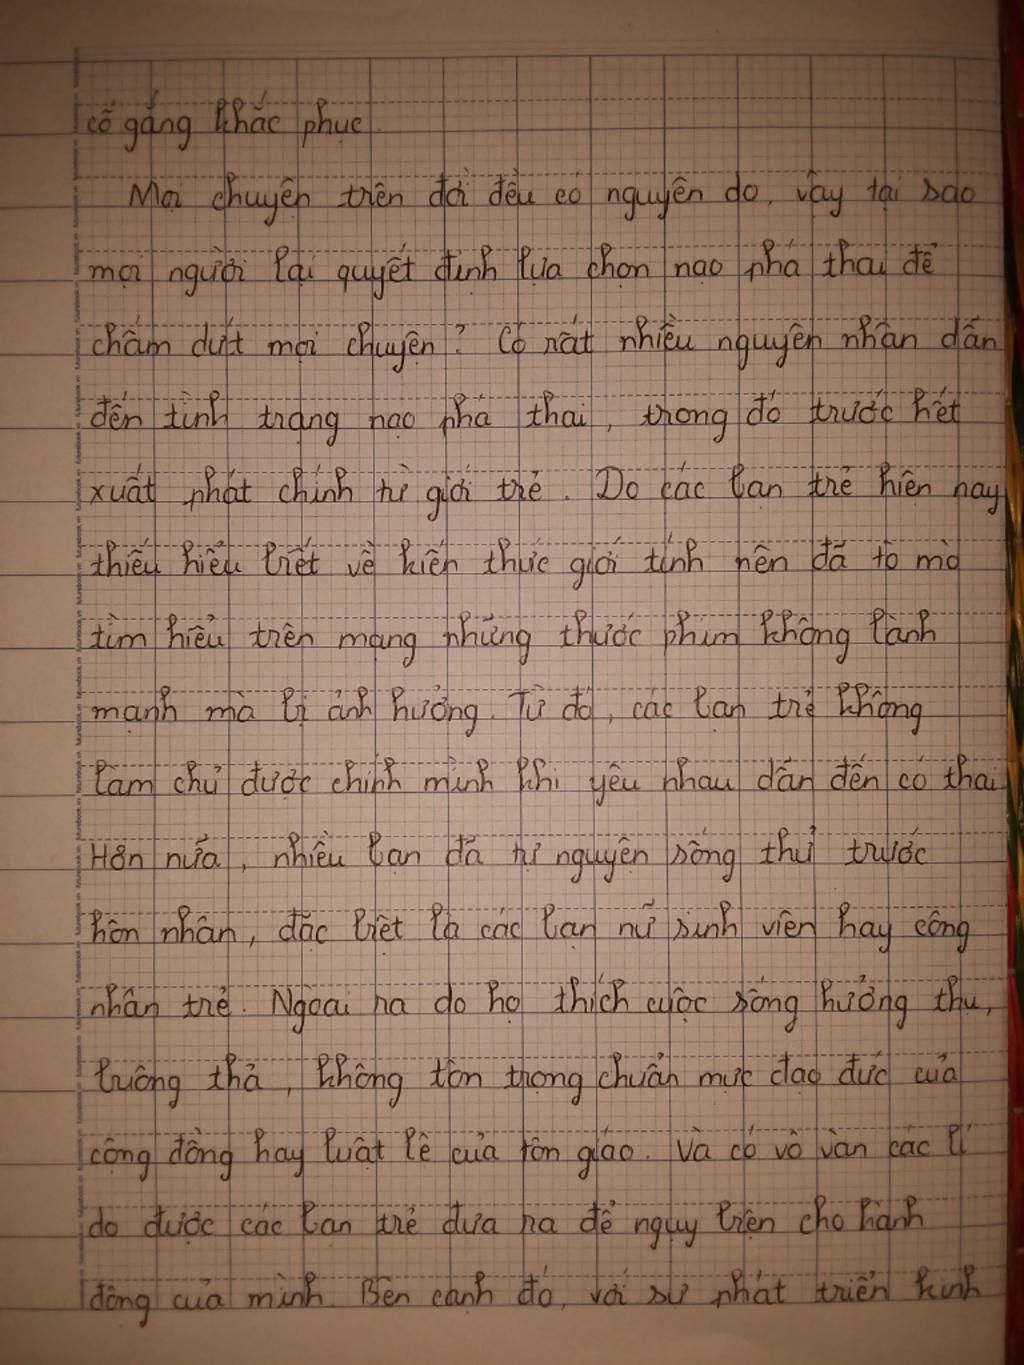 cố gắng khắc phục.
Mọi chuyện trên đời đều có nguyên do, vậy tại sao
mọi người lại quyết định lựa chọn nạo phá thai để
chấm dứt mọi chuyện? Có rất nhiều nguyên nhân dẫn
đến tình trạng nạo phá thai, trong đó trước hết
xuất phát chính từ giới trẻ. Do các bạn trẻ hiện nay
thiếu hiểu biết về kiến thức giới tính nên đã tò mò
tìm hiểu trên mạng những thước phim không lành
mạnh mà bị ảnh hưởng. Từ đó, các bạn trẻ không
làm chủ được chính mình khi yêu nhau dẫn đến có thai.
Hơn nữa, nhiều bạn đã tự nguyện sống thử trước
hôn nhân, đặc biệt là các bạn nữ sinh viên hay công
nhân trẻ. Ngoài ra do họ thích cuộc sống hưởng thụ,
buông thả, không tôn trọng chuẩn mực đạo đức của
cộng đồng hay luật lệ của tôn giáo. Và có vô vàn các lí
do được các bạn trẻ đưa ra để ngụy biện cho hành
động của mình. Bên cạnh đó, với sự phát triển kinh